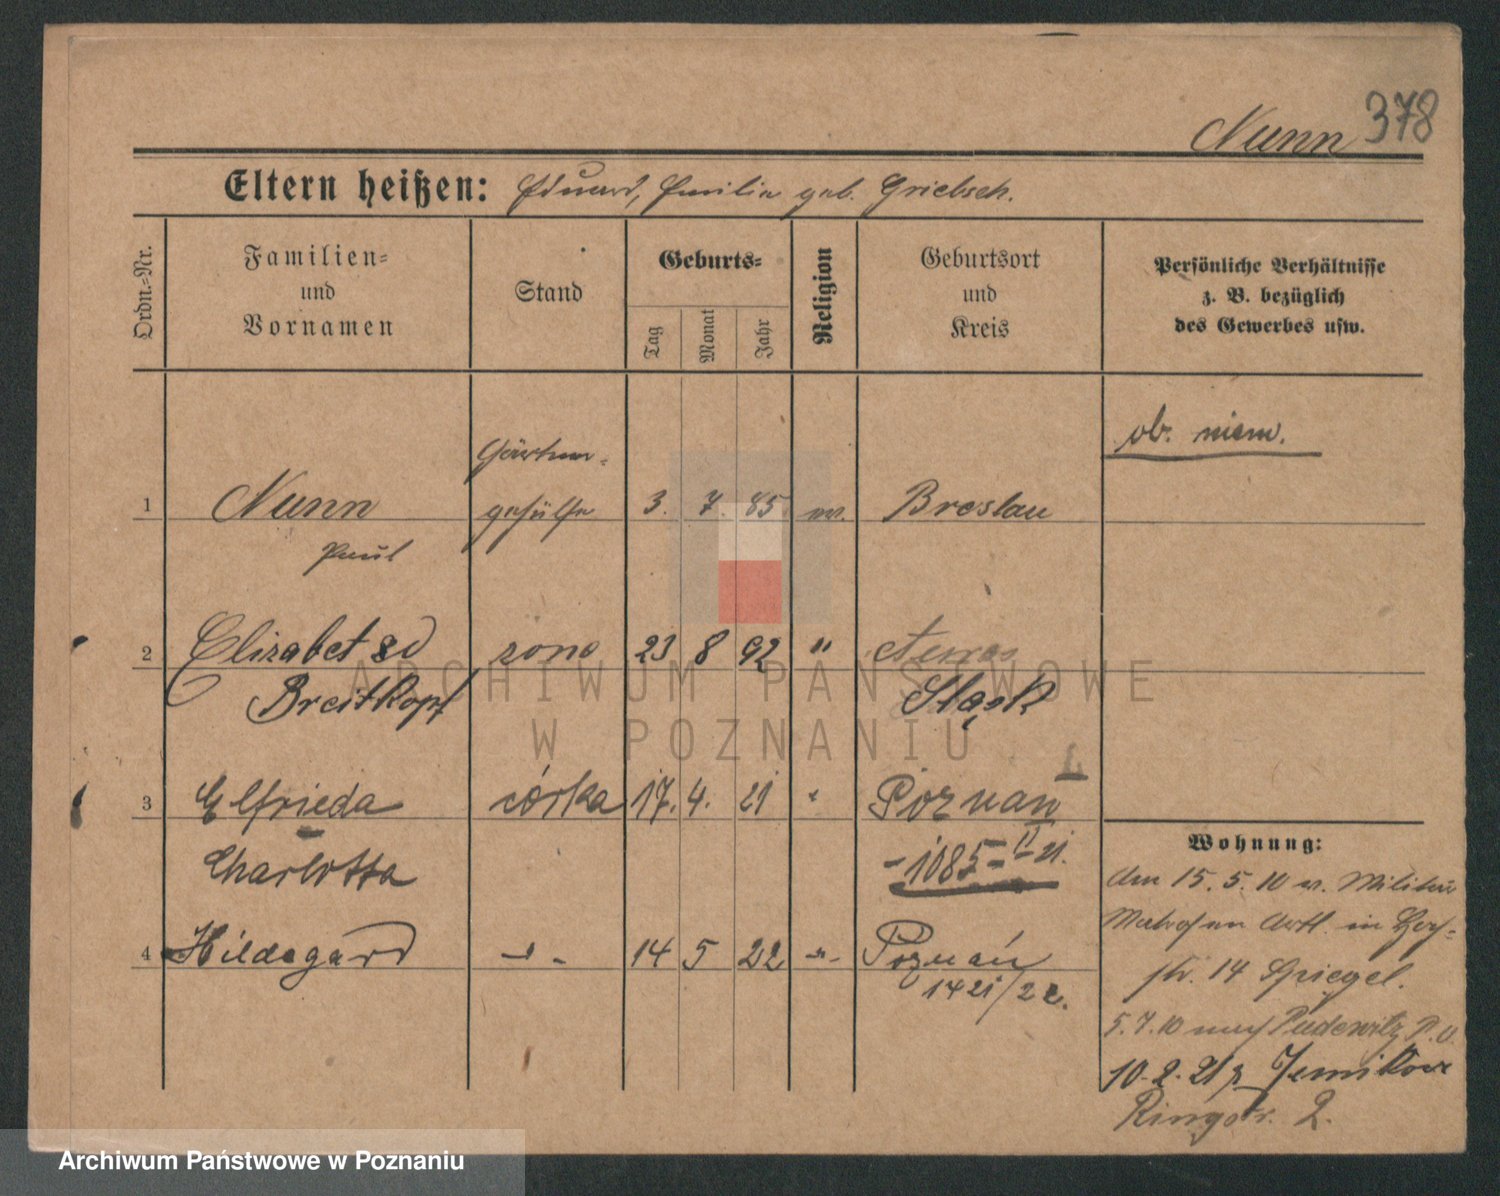 Nunn 378
Eltern heißen: Eduard, Emilie geb. Griebsch.
Ordn.-Nr.
Familien- und Vornamen
Stand
Geburts-
Tag
Monat
Jahr
Religion
Geburtsort und Kreis
Persönliche Verhältnisse
z. B. bezüglich
des Gewerbes usw.
ob. niem.
Gärtner-
1 Nunn gehülfe 3. 7. 85. ev. Breslau
Paul
2 Elizabet żona 23 8 92 "
Breitkopf Śląsk
3 Elfrieda córka 17. 4. 21 " Poznań
Charlotta 1085 II 21.
4 Hildegard -"- 14 5 22 -"- Poznań
1421/22.
Wohnung:
Am 15. 5. 10 v. Militär
Matrosen Artl. in
str. 14 Spiegel.
5. 7. 10 nach Pudewitz
10. 2. 21 z
Ringstr. 2.
ARCHIWUM PAŃSTWOWE
W POZNANIU
Archiwum Państwowe w Poznaniu